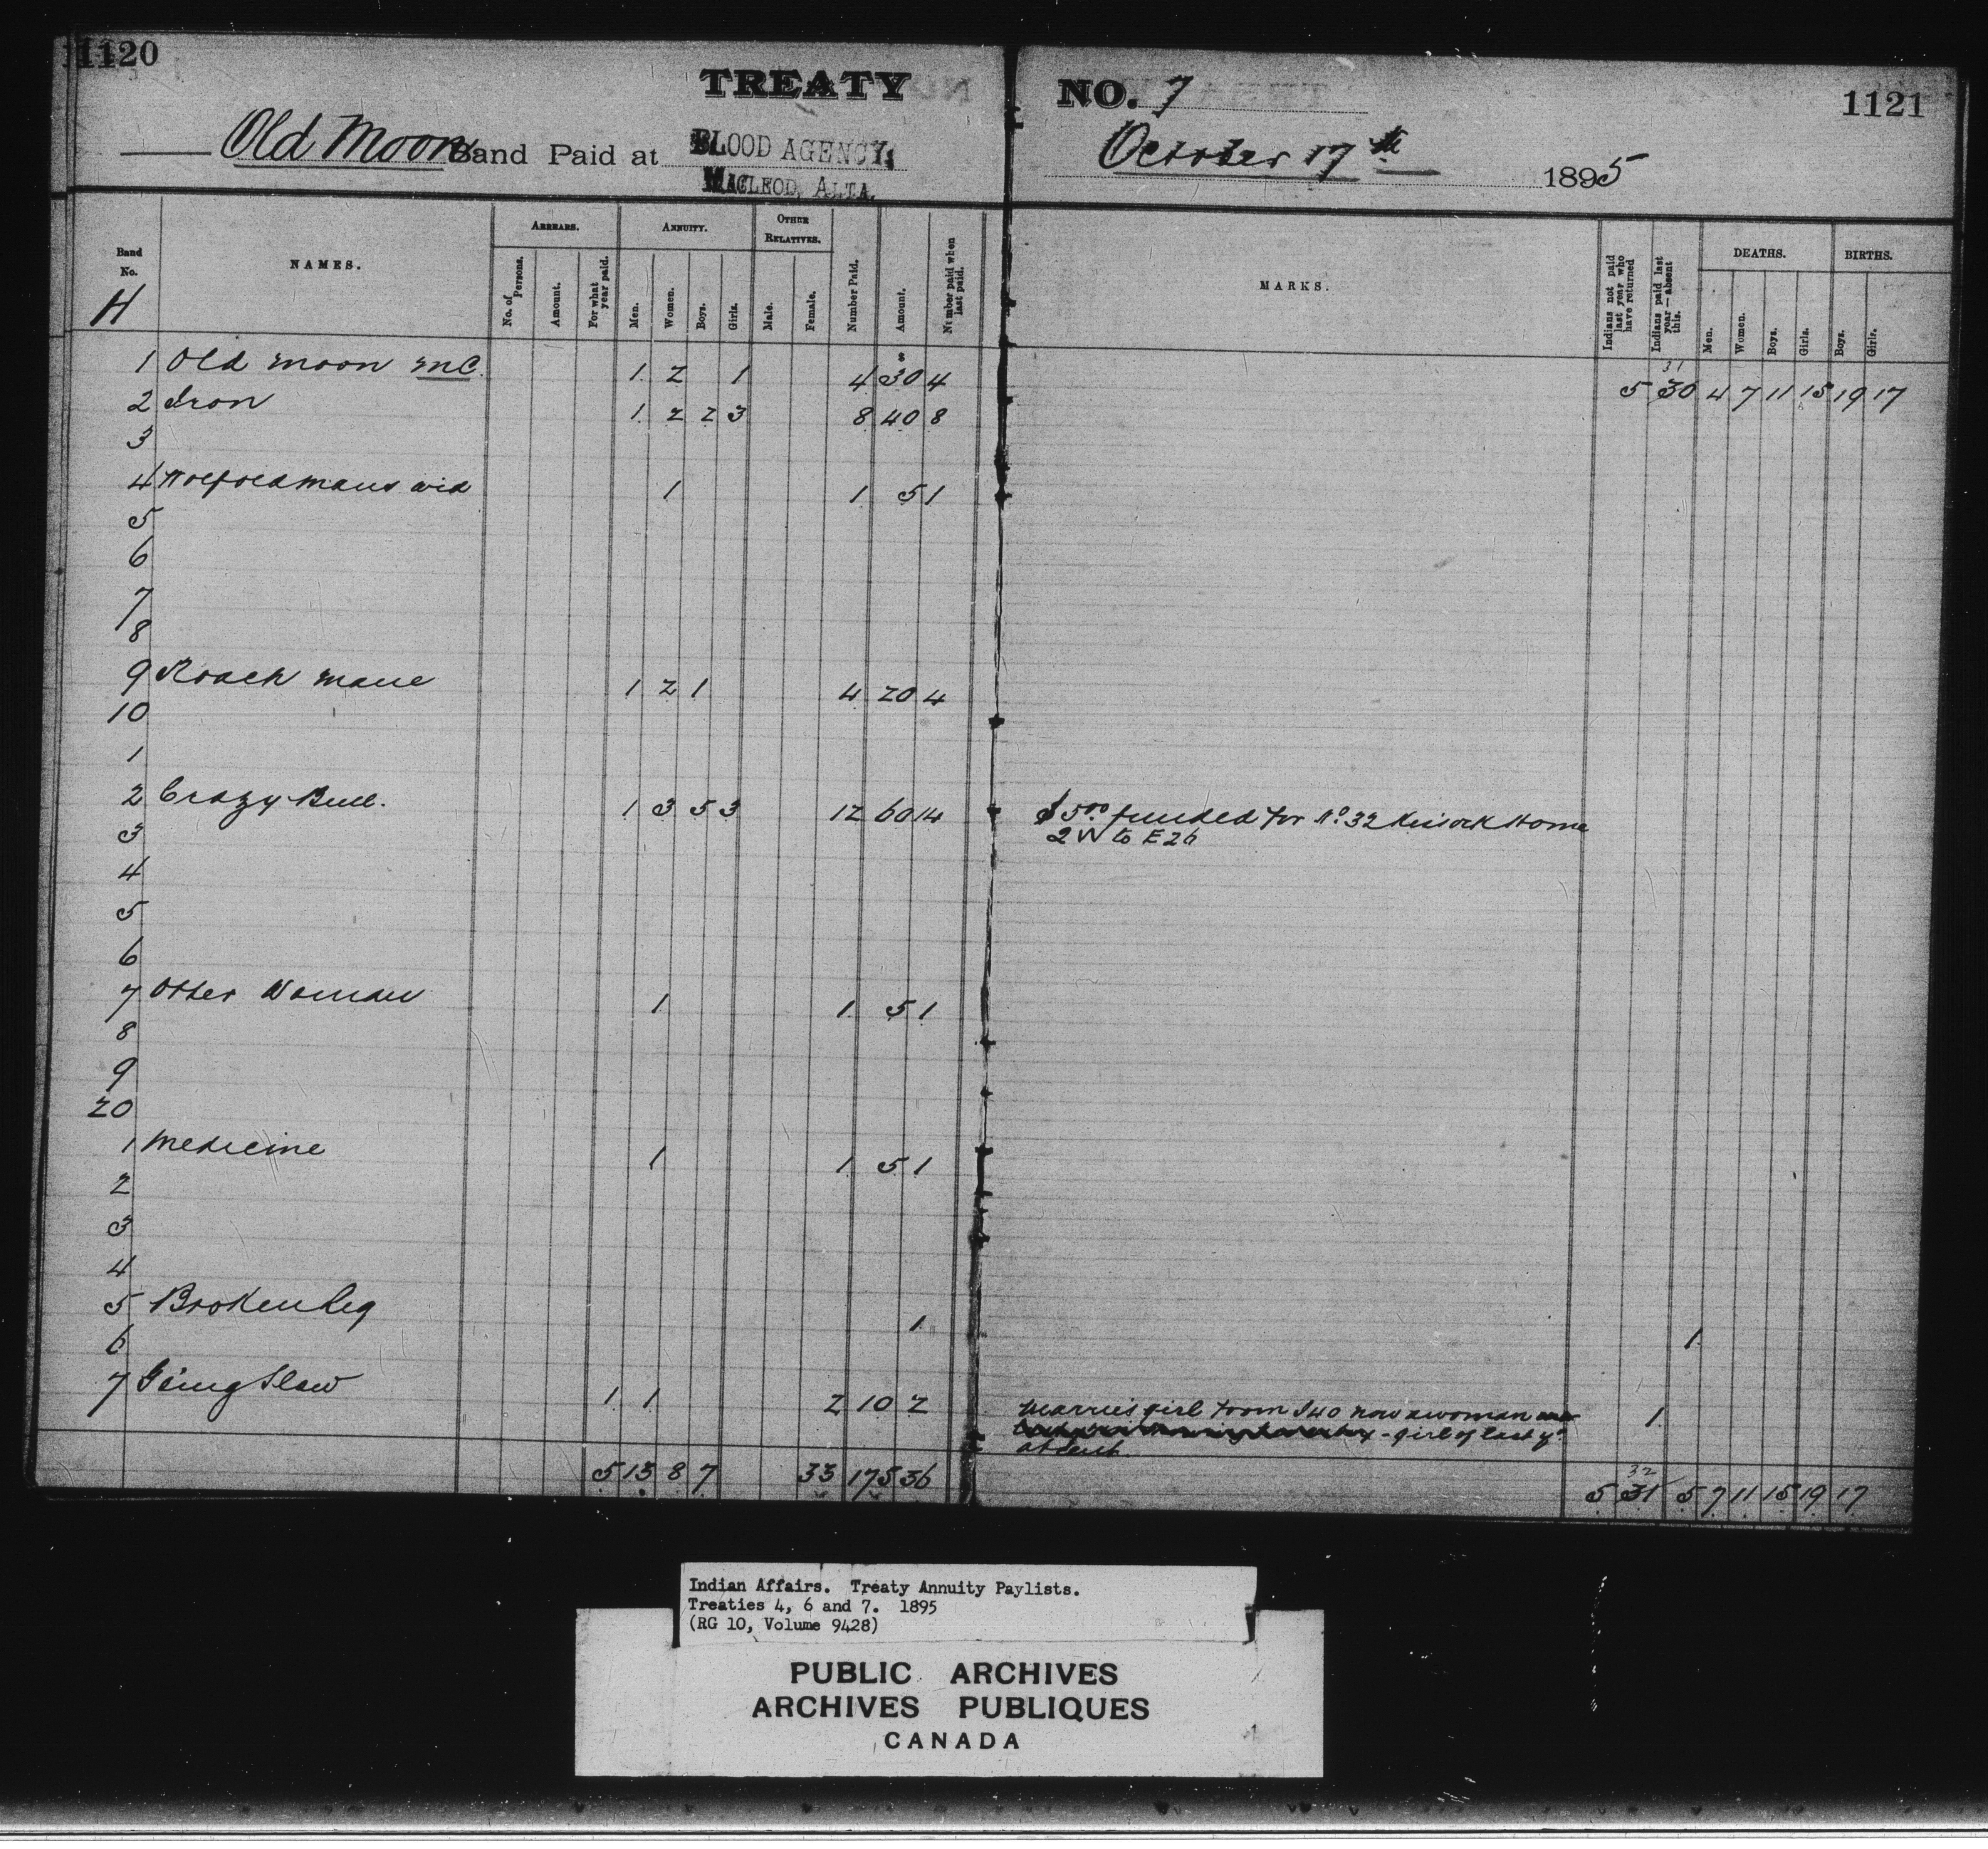 1120
TREATY NO. 7
1121
Old Moon Band Paid at BLOOD AGENCY, October 17th 1895
MACLEOD, ALTA.
Band No. NAMES. ARREARS. ANNUITY. OTHER RELATIVES. Number Paid. Amount. Number paid when last paid. MARKS. Indians not paid last year who have returned Indians paid last year — absent this. DEATHS. BIRTHS.
No. of Persons. Amount. For what year paid. Men. Women. Boys. Girls. Male. Female. Men. Women. Boys. Girls. Boys. Girls.
H
$
31
1 Old moon mC. 1 2 1 4 30 4 5 30 4 7 11 15 19 17
2 Iron 1 2 2 3 8 40 8
3
4 Wolfoldmans wid 1 1 5 1
5
6
7
8
9 Roach mane 1 2 1 4 20 4
10
1
2 Crazy Bull. 1 3 5 3 12 60 14 $5.00 funded for No. 32 Home
3 2 W to E 26
4
5
6
7 Otter Woman 1 1 5 1
8
9
20
1 Medicine 1 1 5 1
2
3
4
5 Broken Leg 1 1
6
7 Going Slow 1 1 2 10 2 Marries girl from I 40 now a woman 1
- girl of last yr
absent
32
5 13 8 7 33 175 36 5 31 5 7 11 15 19 17
Indian Affairs. Treaty Annuity Paylists.
Treaties 4, 6 and 7. 1895
(RG 10, Volume 9428)
PUBLIC ARCHIVES
ARCHIVES PUBLIQUES
CANADA